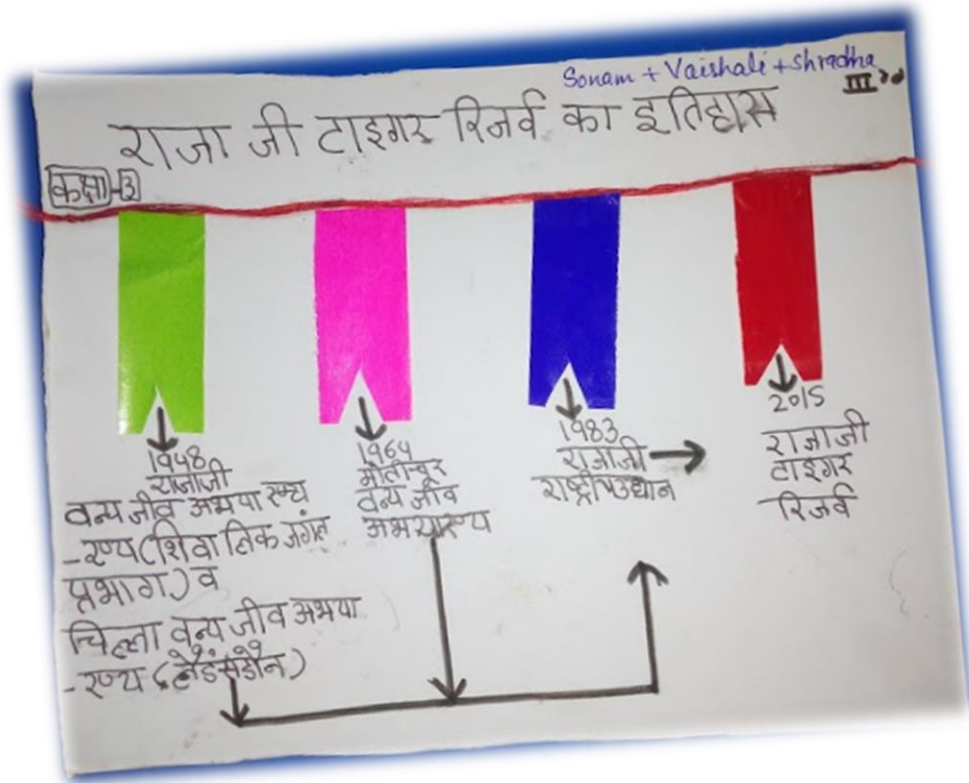 Sonam + Vaishali + Shradha
IIIrd
राजा जी टाइगर रिजर्व का इतिहास
कक्षा-3
1948
राजाजी
वन्य जीव अभयारण्य
-रण्य (शिवालिक जंगल
प्रभाग) व
चिल्ला वन्य जीव अभया
-रण्य (लैंडसडौन)
1964
मोतीचूर
वन्य जीव
अभयारण्य
1983
राजाजी
राष्ट्रीय उद्यान
2015
राजाजी
टाइगर
रिजर्व